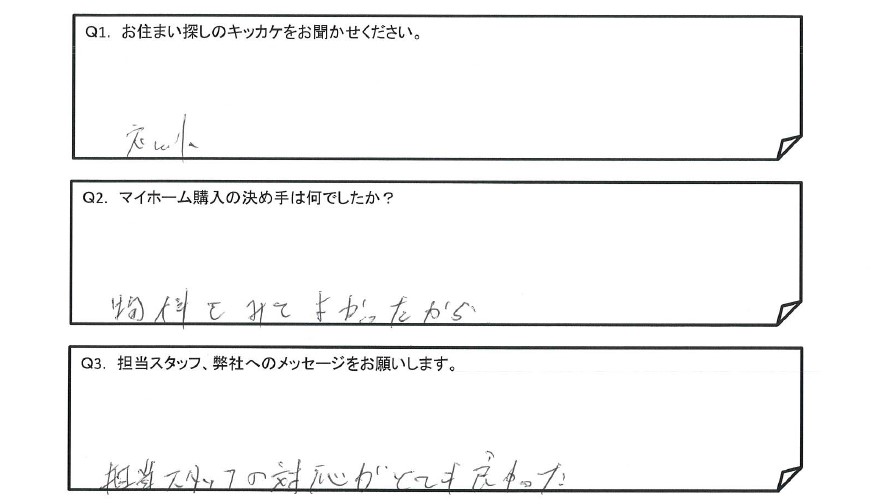 Q1. お住まい探しのキッカケをお聞かせください。
Q2. マイホーム購入の決め手は何でしたか？
物件をみてよかったから
Q3. 担当スタッフ、弊社へのメッセージをお願いします。
担当スタッフの対応がとても良かった